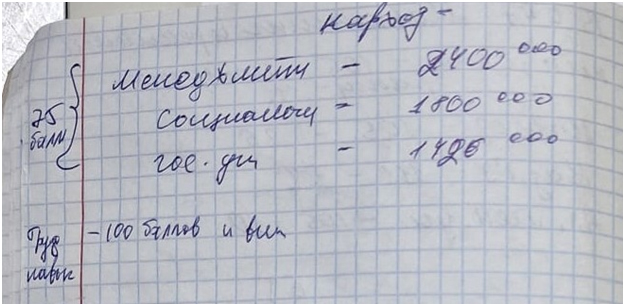 нархоз -
75 балл { Менеджмент - 2400 000
Социологи - 1800 000
гос. - 1426 000
Труд навык - 100 баллов и выш